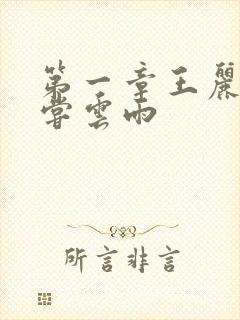 第一章王麗
嘗雲雨
所言非言